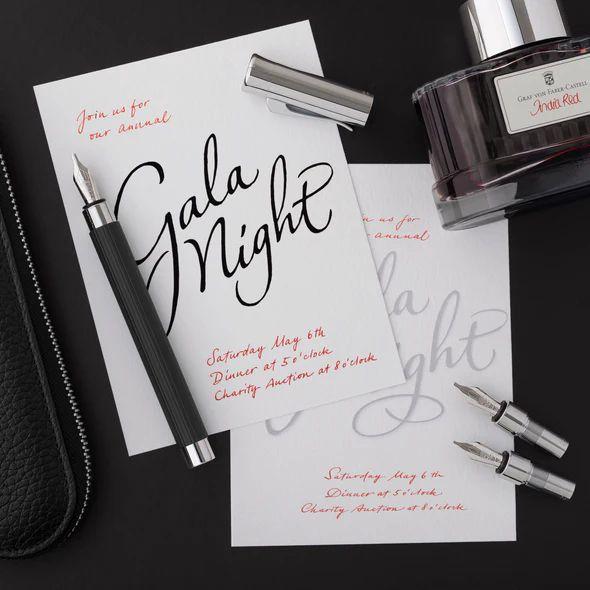 Join us for
our annual
Gala
Night
Saturday May 6th
Dinner at 5 o'clock
Charity Auction at 8 o'clock
GRAF VON FABER-CASTELL
India Red
us for
annual
Night
Saturday May 6th
Dinner at 5 o'clock
Charity Auction at 8 o'clock